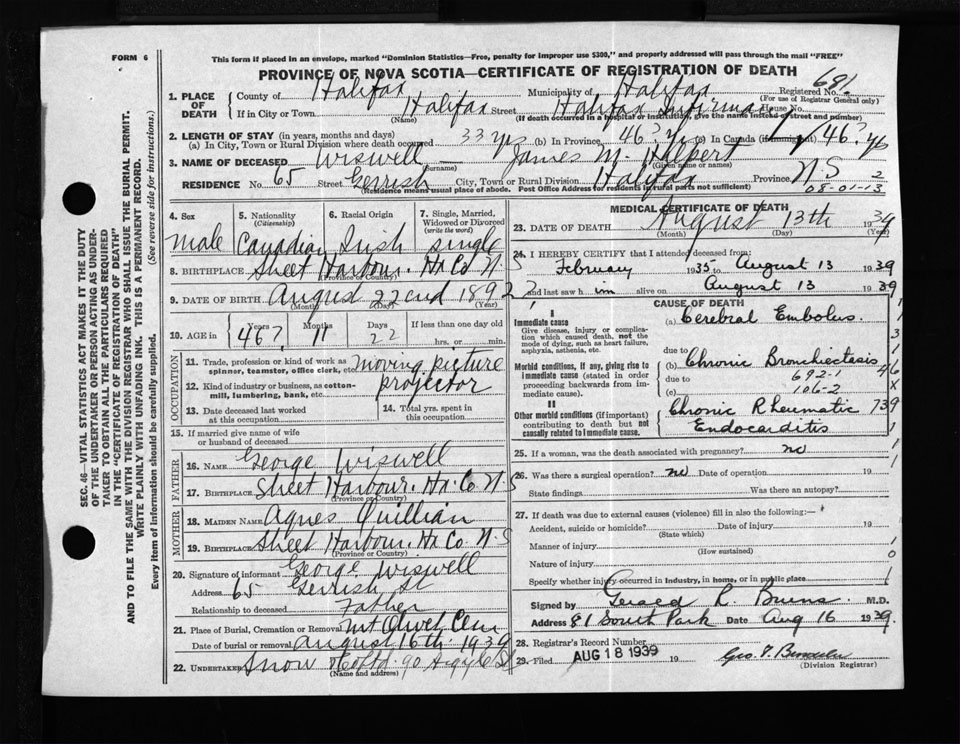 FORM 6
This form if placed in an envelope, marked "Dominion Statistics—Free, penalty for improper use $300," and properly addressed will pass through the mail "FREE"
PROVINCE OF NOVA SCOTIA—CERTIFICATE OF REGISTRATION OF DEATH
SEC. 46—VITAL STATISTICS ACT MAKES IT THE DUTY
OF THE UNDERTAKER OR PERSON ACTING AS UNDER-
TAKER TO OBTAIN ALL THE PARTICULARS REQUIRED
IN THE "CERTIFICATE OF REGISTRATION OF DEATH"
AND TO FILE THE SAME WITH THE DIVISION REGISTRAR WHO SHALL ISSUE THE BURIAL PERMIT.
WRITE PLAINLY WITH UNFADING INK. THIS IS A PERMANENT RECORD.
Every item of information should be carefully supplied. (See reverse side for instructions.)
1. PLACE OF DEATH
County of Halifax Municipality of Halifax Registered No. 681
(For use of Registrar General only)
If in City or Town Halifax Street Halifax Infirmary House No.
(Name) (If death occurred in a hospital or institution, give the name instead of street and number)
2. LENGTH OF STAY (in years, months and days)
(a) In City, Town or Rural Division where death occurred 33 yrs (b) In Province 46? yrs (c) In Canada (if immigrant) 46? yrs
3. NAME OF DECEASED Wiswell — James M.
(Surname) (Given name or names)
RESIDENCE No. 65 Street Gerrish City, Town or Rural Division Halifax Province N.S 2
(Residence means usual place of abode. Post Office Address for residents in rural parts not sufficient)
08-01-13
4. Sex
male
5. Nationality
(Citizenship)
Canadian
6. Racial Origin
Irish
7. Single, Married,
Widowed or Divorced
(write the word)
single
8. BIRTHPLACE Sheet Harbour. Hx Co N.S
(Province or Country)
9. DATE OF BIRTH August 22nd 1892?
(Month) (Day) (Year)
10. AGE in
Years Months Days If less than one day old
46? 11 22 hrs. or min.
OCCUPATION
11. Trade, profession or kind of work as
spinner, teamster, office clerk, etc. moving picture
12. Kind of industry or business, as cotton-
mill, lumbering, bank, etc. projector
13. Date deceased last worked
at this occupation
14. Total yrs. spent in
this occupation
15. If married give name of wife
or husband of deceased
FATHER
16. NAME George Wiswell
17. BIRTHPLACE Sheet Harbour. Hx. Co N.S
(Province or Country)
MOTHER
18. MAIDEN NAME Agnes Quillian
19. BIRTHPLACE Sheet Harbour. Hx Co. N.S
(Province or Country)
20. Signature of informant George Wiswell
Address 65 Gerrish St
Relationship to deceased Father
21. Place of Burial, Cremation or Removal Mt Olivet Cem
Date of burial or removal August 16th 1939
22. UNDERTAKER Snow 90 Argyle St
(Name and address)
MEDICAL CERTIFICATE OF DEATH
23. DATE OF DEATH August 13th 1939
(Month) (Day) (Year)
24. I HEREBY CERTIFY that I attended deceased from:
February 1935 to August 13 1939
and last saw him alive on August 13 1939
CAUSE OF DEATH
I
Immediate cause
Give disease, injury or complica-
tion which caused death, not the
mode of dying, such as heart failure,
asphyxia, asthenia, etc.
(a) Cerebral Embolus.
due to
Morbid conditions, if any, giving rise to
immediate cause (stated in order
proceeding backwards from im-
mediate cause).
(b) Chronic Bronchiectasis
due to 692-1
(c) 106-2
II
Other morbid conditions (if important)
contributing to death but not
causally related to immediate cause.
Chronic Rheumatic
Endocarditis
25. If a woman, was the death associated with pregnancy? no
26. Was there a surgical operation? no Date of operation 19
State findings Was there an autopsy?
27. If death was due to external causes (violence) fill in also the following:—
Accident, suicide or homicide? Date of injury 19
(State which)
Manner of injury
(How sustained)
Nature of injury
Specify whether injury occurred in industry, in home, or in public place
Signed by Gerald R. Burns. M.D.
Address 81 South Park Date Aug 16 1939.
28. Registrar's Record Number
29. Filed AUG 18 1939 19
(Division Registrar)